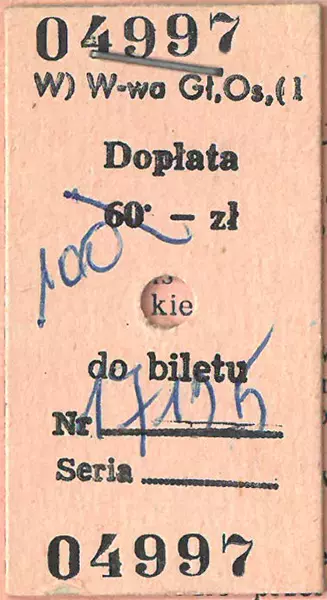 04997
W) W-wa Gł,Os,(1
Dopłata
60· – zł
100
kie
do biletu
Nr 17155
Seria
04997